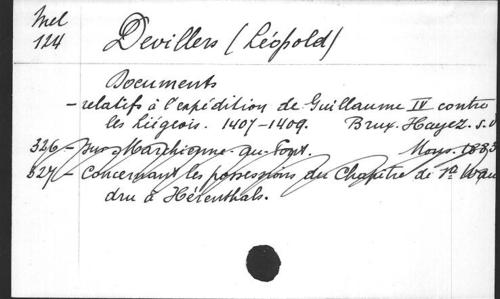 Mel
124
Devillers (Léopold)
Documents
- relatifs à l'expédition de Guillaume IV contre
les Liégeois. 1407-1409. Brux. Hayez. s.d
326 - sur Marchienne-au-Pont. Mons. 1883
327 - concernant les possessions du Chapitre de Ste Wau
dru à Hérenthals.